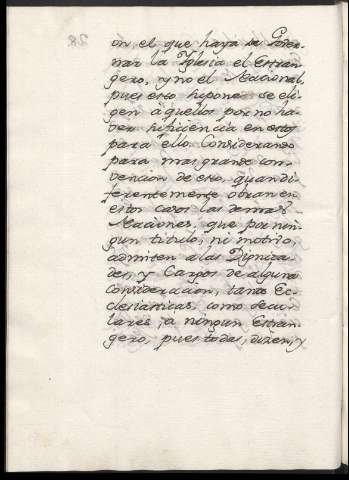 on, el que haya de Gover-
nar la Yglesia el Estran-
gero, y no el Nacional,
pues esto supone se eli-
gen àquellos por no ha-
ver suficiencia en estos
para ello. Considerando
para mas grande con-
vencion de esto, quan di-
ferentemente obran en
estos casos las demas
Naciones, que por nin-
gun titulo, ni motivo,
admiten a las Dignida-
des, y Cargos de alguna
consideracion, tanto Ec-
clesiasticas, como Secu-
lares, a ningun Estran-
gero, pues todas, dizen, y